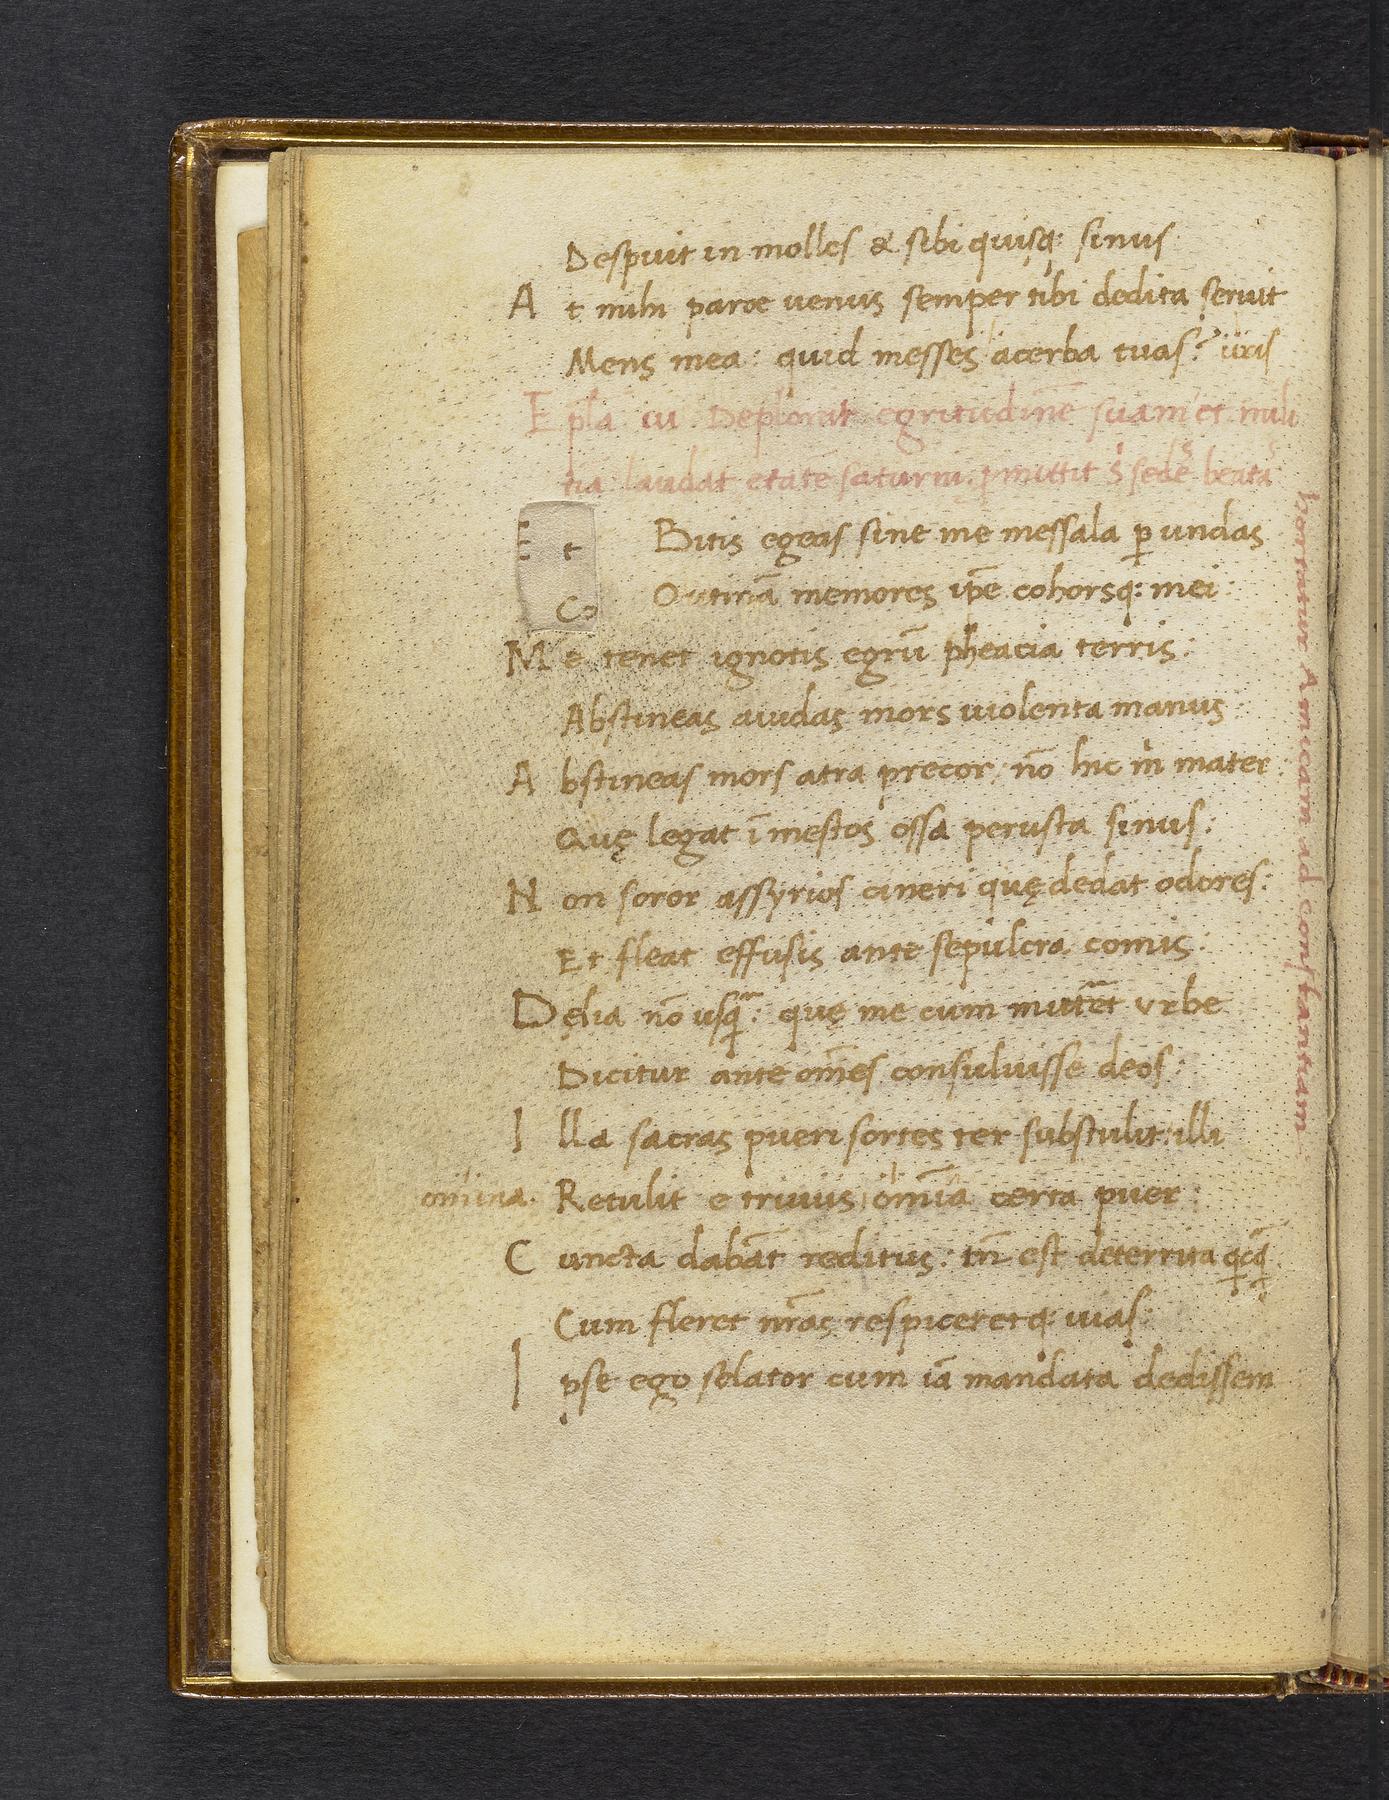 Despuit in molles & sibi quisq: sinus
A t mihi parce uenus semper tibi dedita seruit
Mens mea: quid messes acerba tuas? uris
E pła Deplorat egritudinē suam et mili
tiā laudat etatē saturni. ꝑmittit sedē beatā
hortatur Amicam ad constantiam
Bitis egeas sine me messala ꝑ undas
O utinā memores ip̄e cohorsq: mei:
E t
Co
M e tenet ignotis egrū pheacia terris:
Abstineas auidas mors uiolenta manus:
A bstineas mors atra precor, nō hic m̊ mater:
Quę legat ī mestos ossa perusta sinus:
N on soror assyrios cineri quę dedat odores:
Et fleat effusis ante sepulcra comis:
D elia nō usq̄: quę me cum mittēt urbe
Dicitur ante om̄es consuluisse deos:
I lla sacras pueri sortes ter substulit: illi
omina. Retulit e triuiis om̄ia certa puer:
C uncta dabāt reditus: tn̄ est deterrita
Cum fleret nr̄as respiceretq: uias:
I pse ego solator cum iā mandata dedissem